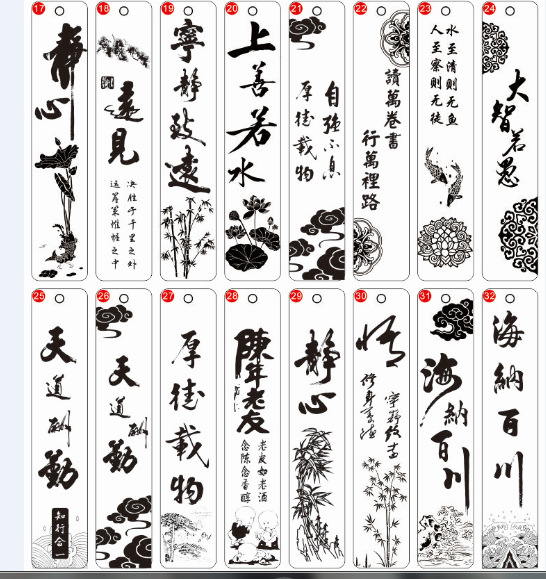 17
静心
18
遠見
决胜于千里之外
运筹策帷帐之中
19
寧静致遠
20
上善若水
21
自强不息
厚德载物
22
讀萬卷書
行萬裡路
23
水至清则无鱼
人至察则无徒
24
大智若愚
25
天道酬勤
知行合一
26
天道酬勤
27
厚德載物
28
陳年老友
老友如老酒
念陈念香醇
29
静心
30
悟
宁静致远
修身养德
31
海納百川
32
海納百川